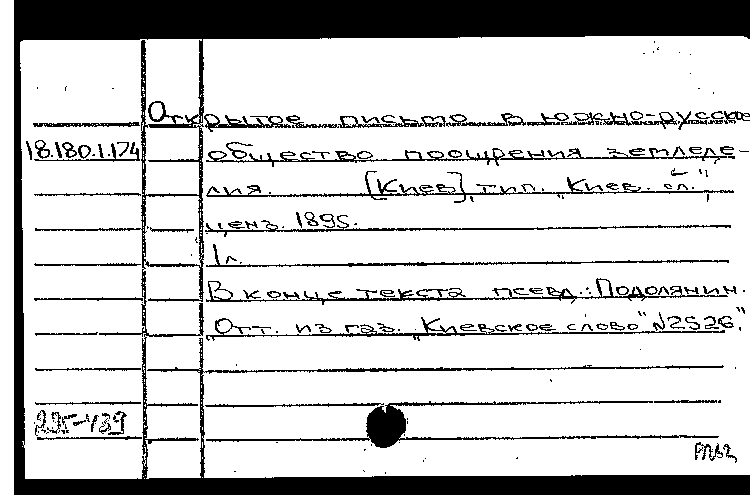 Открытое письмо в южно-русское
18.180.1.174 общество поощрения земледе-
лия. [Киев], тип. "Киев. сл.",
ценз. 1895.
1л.
В конце текста псевд.: Подолянин.
"Отт. из газ. "Киевское слово" №2526".
295-439